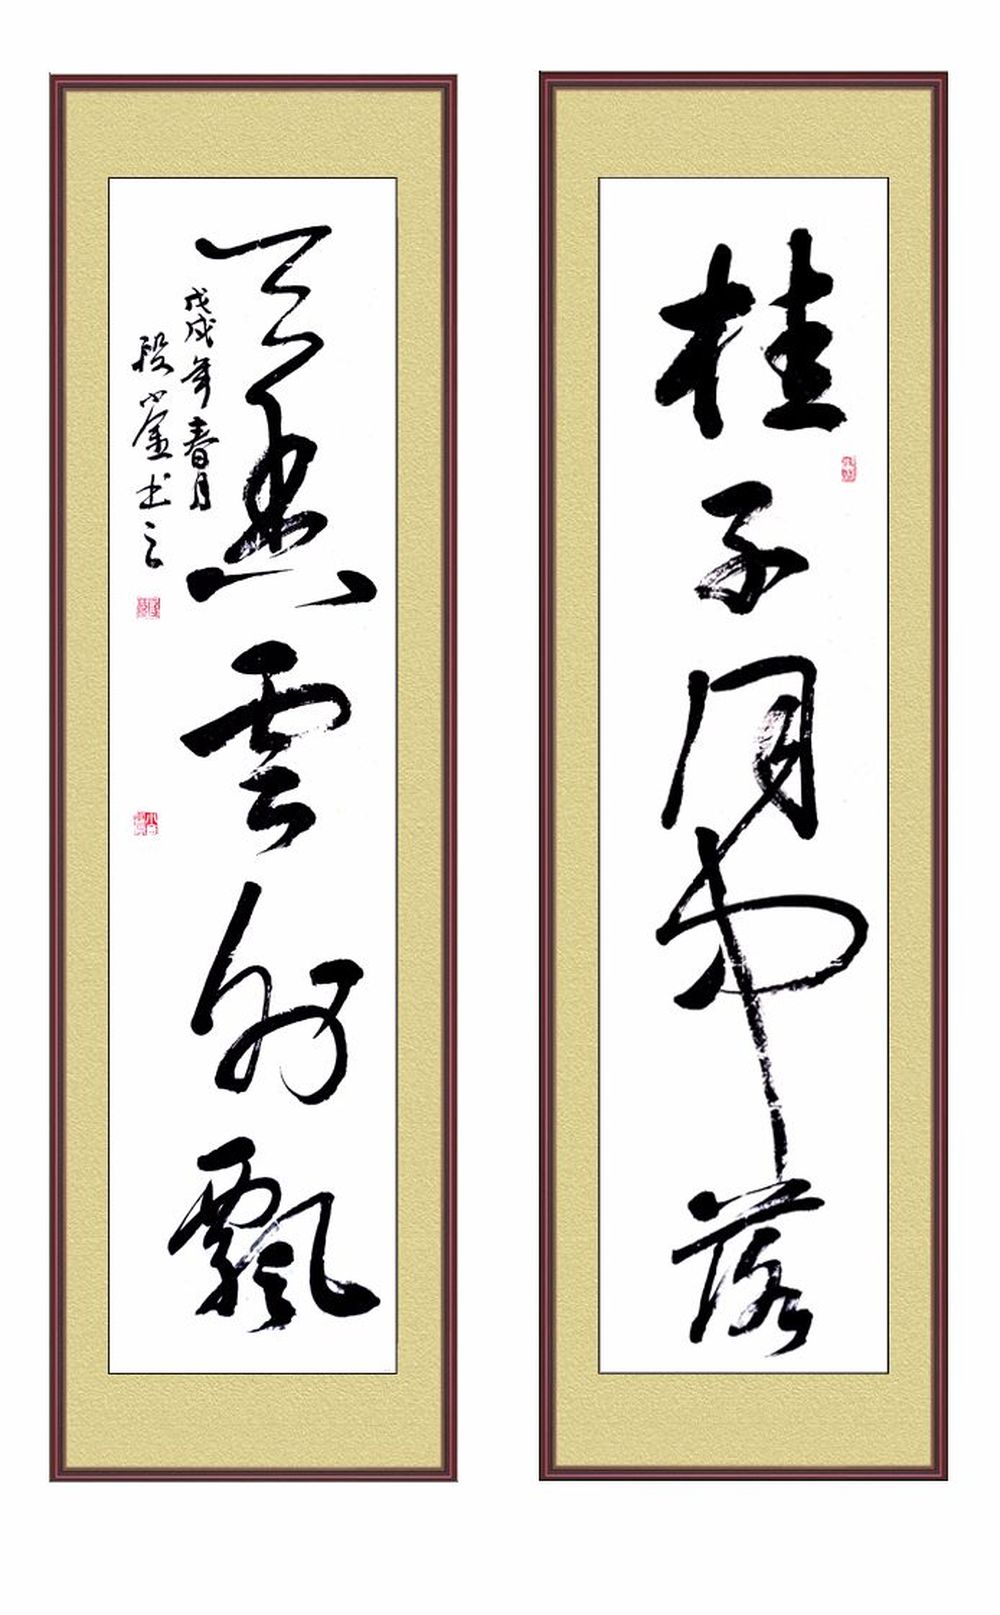 桂子月中落
天香雲外飄
戊戌年春月
段小 书之